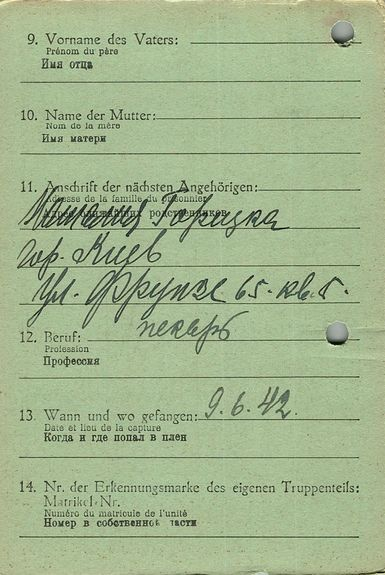 9. Vorname des Vaters:
Prénom du père
Имя отца
10. Name der Mutter:
Nom de la mère
Имя матери
11. Anschrift der nächsten Angehörigen:
Adresse de la famille du prisonnier
Адрес ближайших родственников
гор. Киев
ул. Фрунзе 65. кв. 5.
12. Beruf:
пекарь
Profession
Профессия
13. Wann und wo gefangen: 9. 6. 42.
Date et lieu de la capture
Когда и где попал в плен
14. Nr. der Erkennungsmarke des eigenen Truppenteils:
Matrikel-Nr.
Numéro du matricule de l'unité
Номер в собственной части